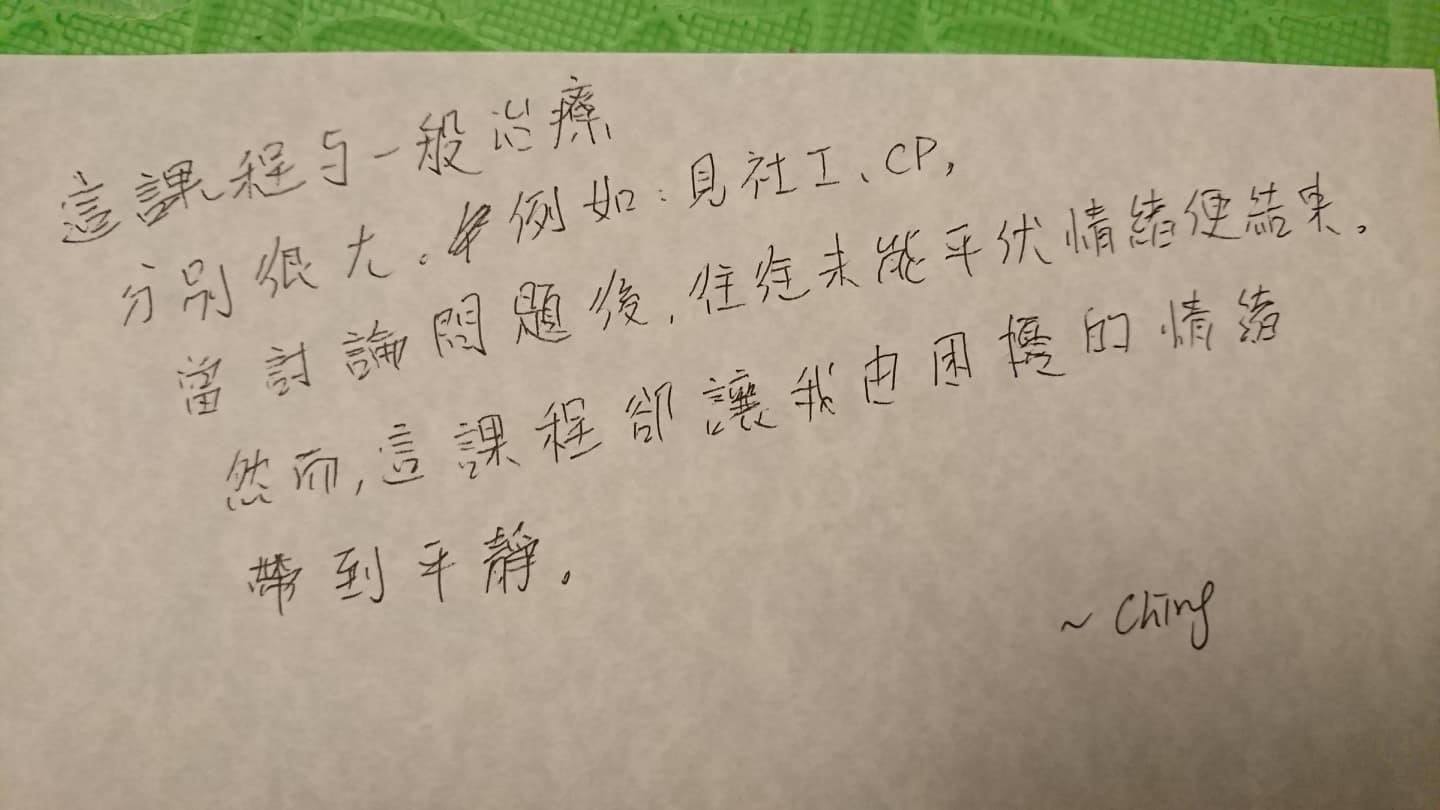 這課程与一般治療
分別很大。例如：見社工、CP，
當討論問題後，往往未能平伏情緒便結束。
然而，這課程卻讓我由困擾的情緒
帶到平靜。
~ Ching